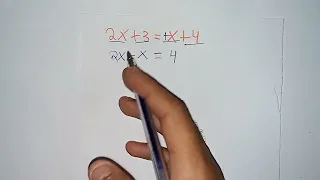 2x+3=+x+4
2x-x=4